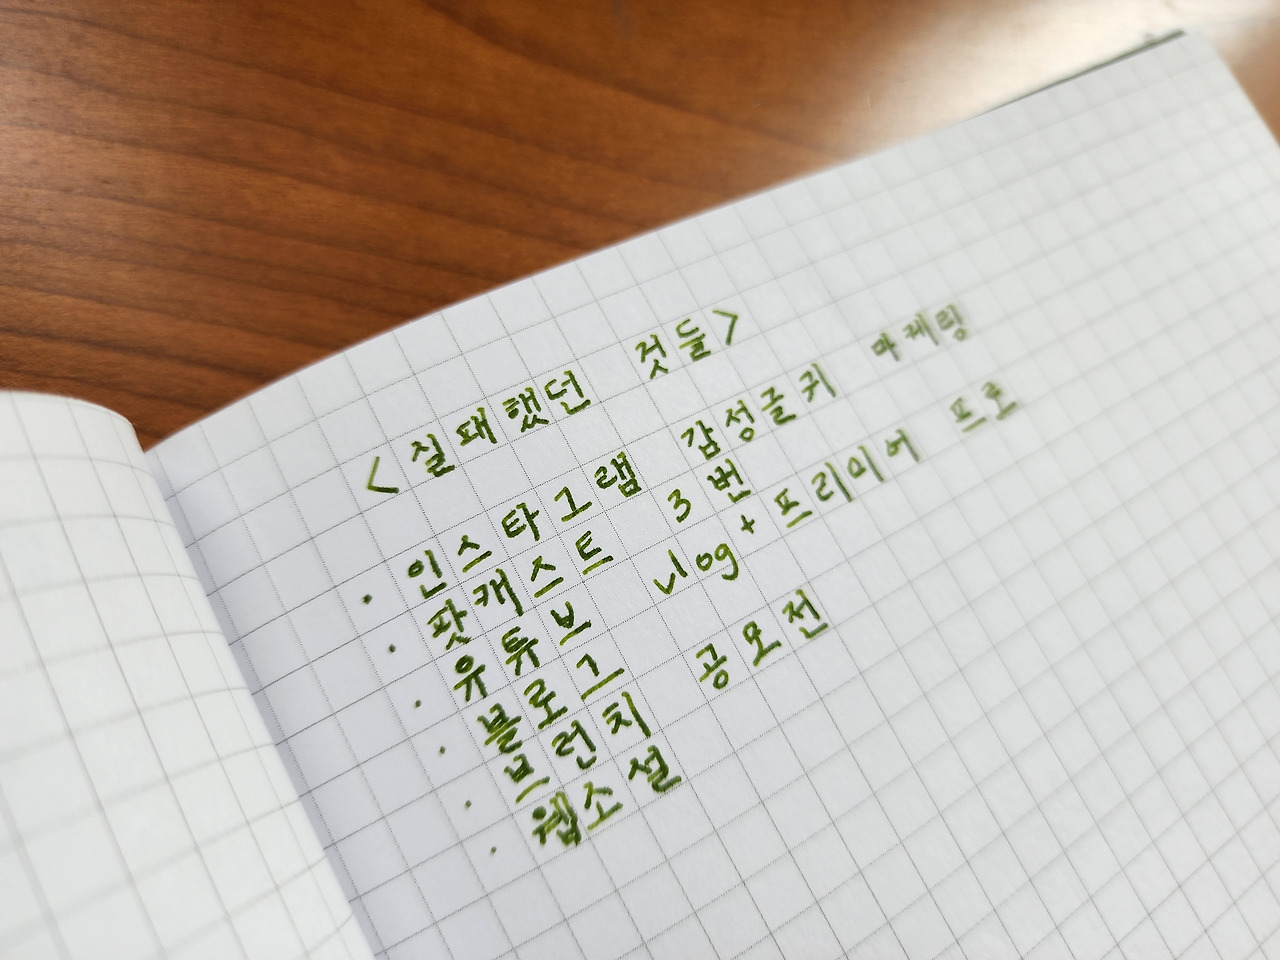 <실패했던 것들>
· 인스타그램 감성글귀 마케팅
· 팟캐스트 3번
· 유튜브 vlog + 프리미어 프로
· 블로그
· 브런치 공모전
· 웹소설